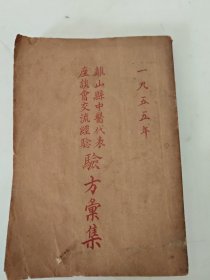 一九五五年
山縣中醫代表
座談會交流經驗
驗方彙集